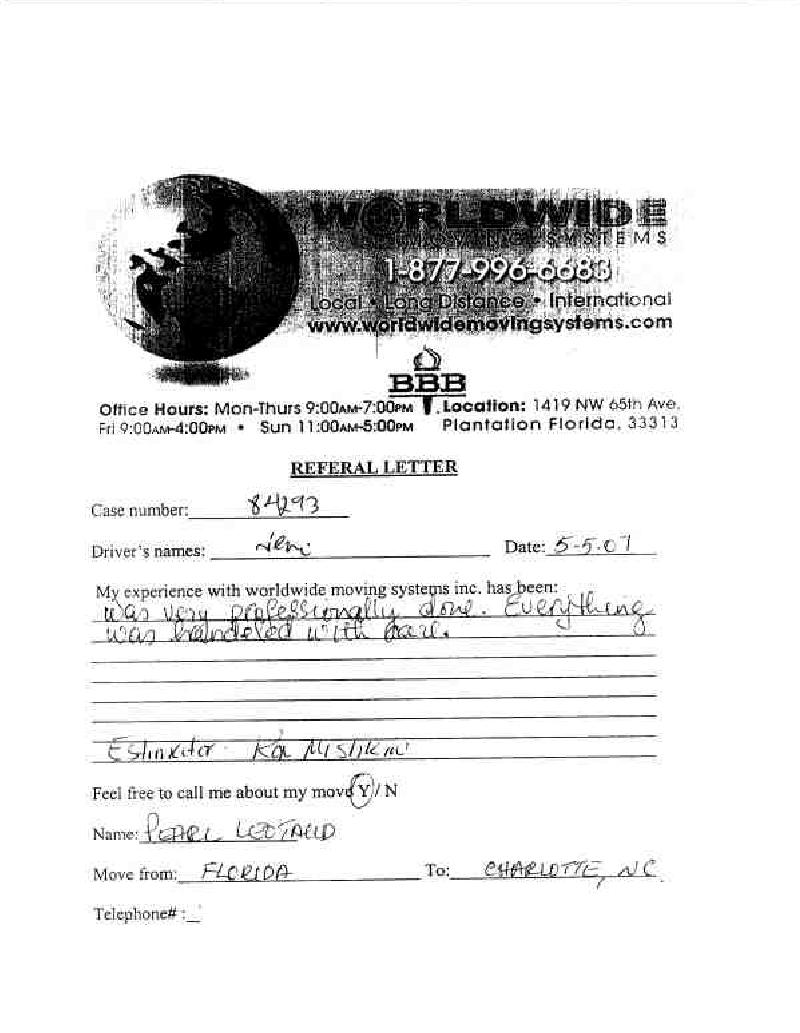 WORLDWIDE
MOVING SYSTEMS
1-877-996-6683
Local • Long Distance • International
www.worldwidemovingsystems.com
BBB
Office Hours: Mon-Thurs 9:00AM-7:00PM
Fri 9:00AM-4:00PM • Sun 11:00AM-5:00PM
Location: 1419 NW 65th Ave.
Plantation Florida, 33313
REFERAL LETTER
Case number: 84293
Driver's names: Date: 5-5-07
My experience with worldwide moving systems inc. has been:
was very professionally done. Everything
was handeled with care.
Estimator
Feel free to call me about my move Y / N
Name: PEARL LEOTAUD
Move from: FLORIDA To: CHARLOTTE, NC
Telephone# :